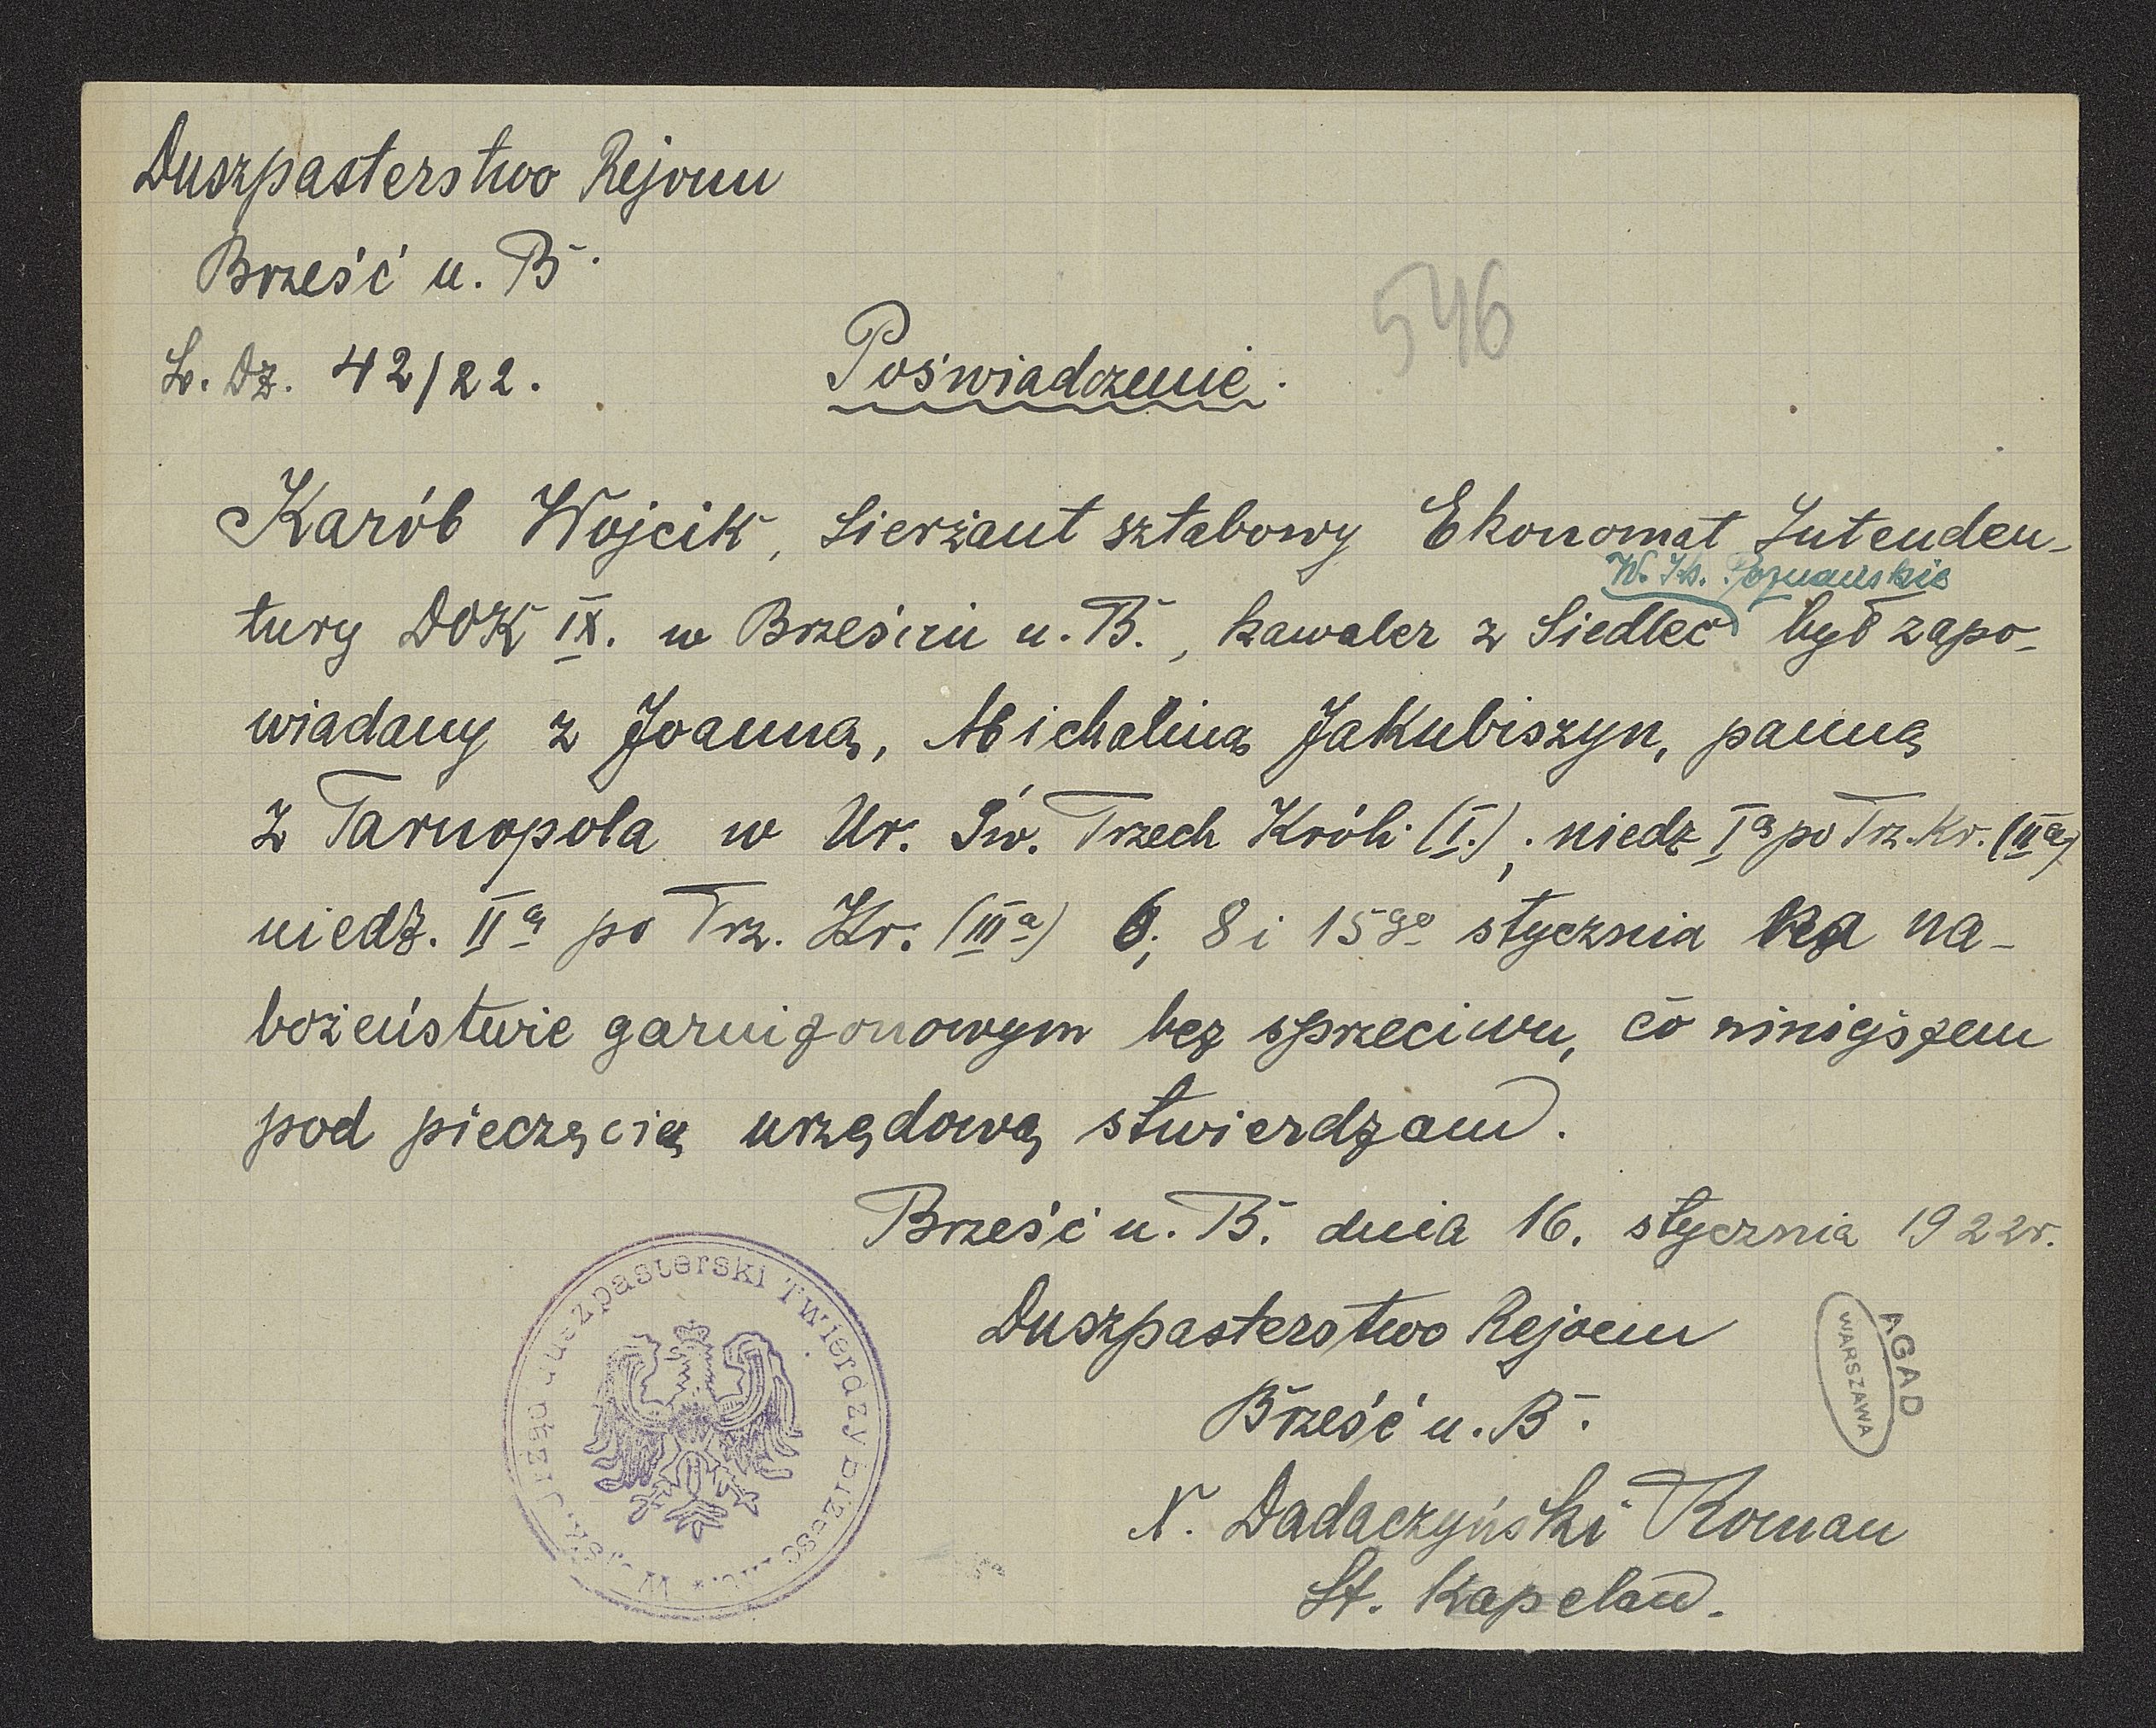 Duszpasterstwo Rejonu
Brześć n. B.
L. Dz. 42/22.
546
Poświadczenie.
Karób Wojcik, sierżant sztabowy Ekonomat Intenden-
W. Ks. Poznańskie
tury DOK IX. w Brześciu n. B., kawaler z Siedlec był zapo-
wiadany z Joanną, Michaliną Jakubiszyn, panną
z Tarnopola w Ur. Św. Trzech Króli (I.), niedz Ią po Trz. Kr. (IIa)
niedz. IIą po Trz. Kr. (IIIa) 6, 8 i 15go stycznia na-
bożeństwie garnizonowym bez sprzeciwu, co niniejszem
pod pieczęcią urzędową stwierdzam.
Brześć n. B. dnia 16. stycznia 1922r.
Duszpasterstwo Rejonu
Brześć n. B.
X. Dadaczyński Roman
St. Kapelan.
Duszpasterski Twierdzy Brześć
AGAD
WARSZAWA